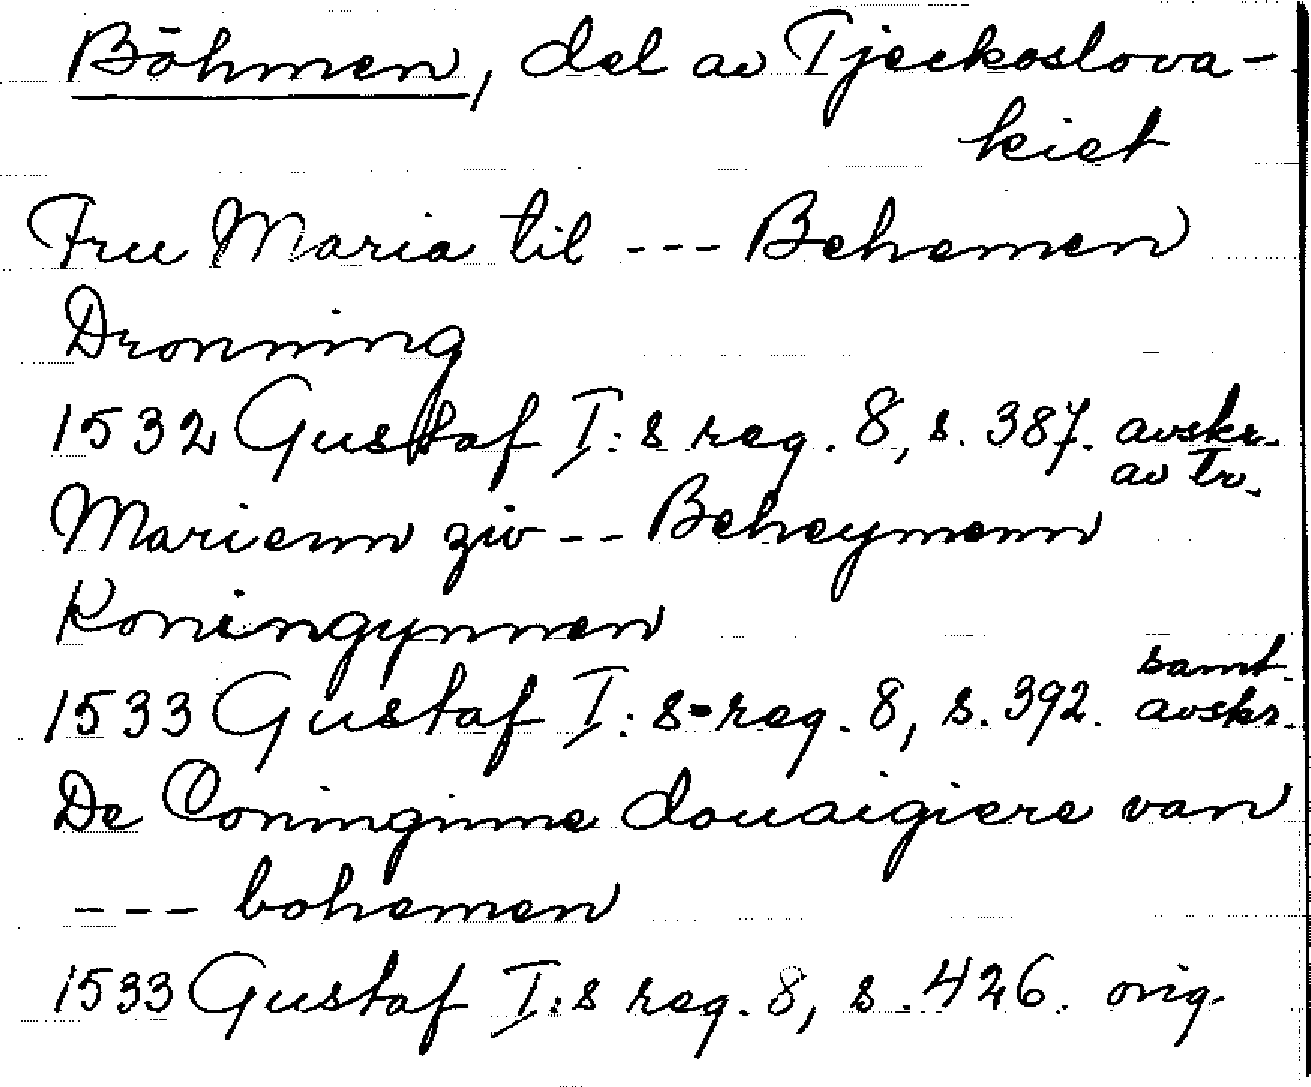 Böhmen, del av Tjeckoslova-
kiet
Fru Maria til --- Behemen
Dronning
1532 Gustaf I:s reg. 8, s. 387. avskr.
av tr.
Marienn zw -- Beheymenn
Koningynnen
1533 Gustaf I:s reg. 8, s. 392. samt.
avskr.
De Coninginne douaigiere van
--- bohemen
1533 Gustaf I:s reg. 8, s. 426. orig.